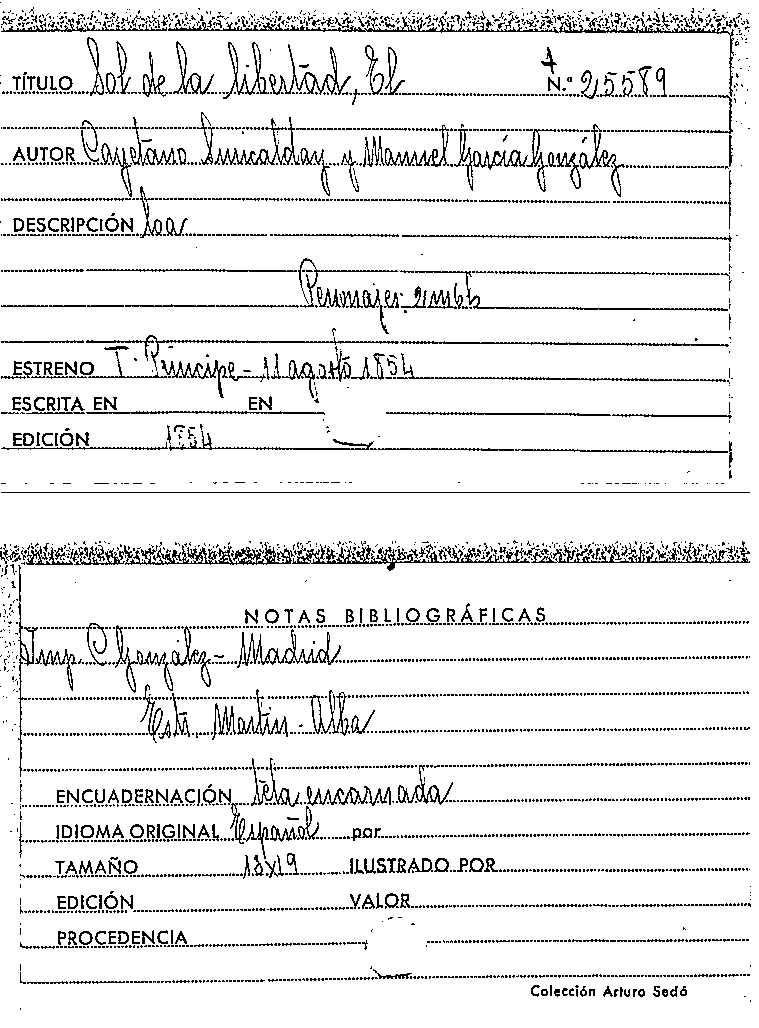 TÍTULO Sol de la libertad, El N.º 25589
AUTOR Cayetano Suricalday y Manuel García González
DESCRIPCIÓN loa
Personajes: 2m6h
ESTRENO T. Príncipe - 11 agosto 1854
ESCRITA EN EN
EDICIÓN 1854
NOTAS BIBLIOGRÁFICAS
Imp C González - Madrid
Estr. Martin - Alba
ENCUADERNACIÓN tela encarnada
IDIOMA ORIGINAL Español por
TAMAÑO 13x19 ILUSTRADO POR
EDICIÓN VALOR
PROCEDENCIA
Colección Arturo Sedó